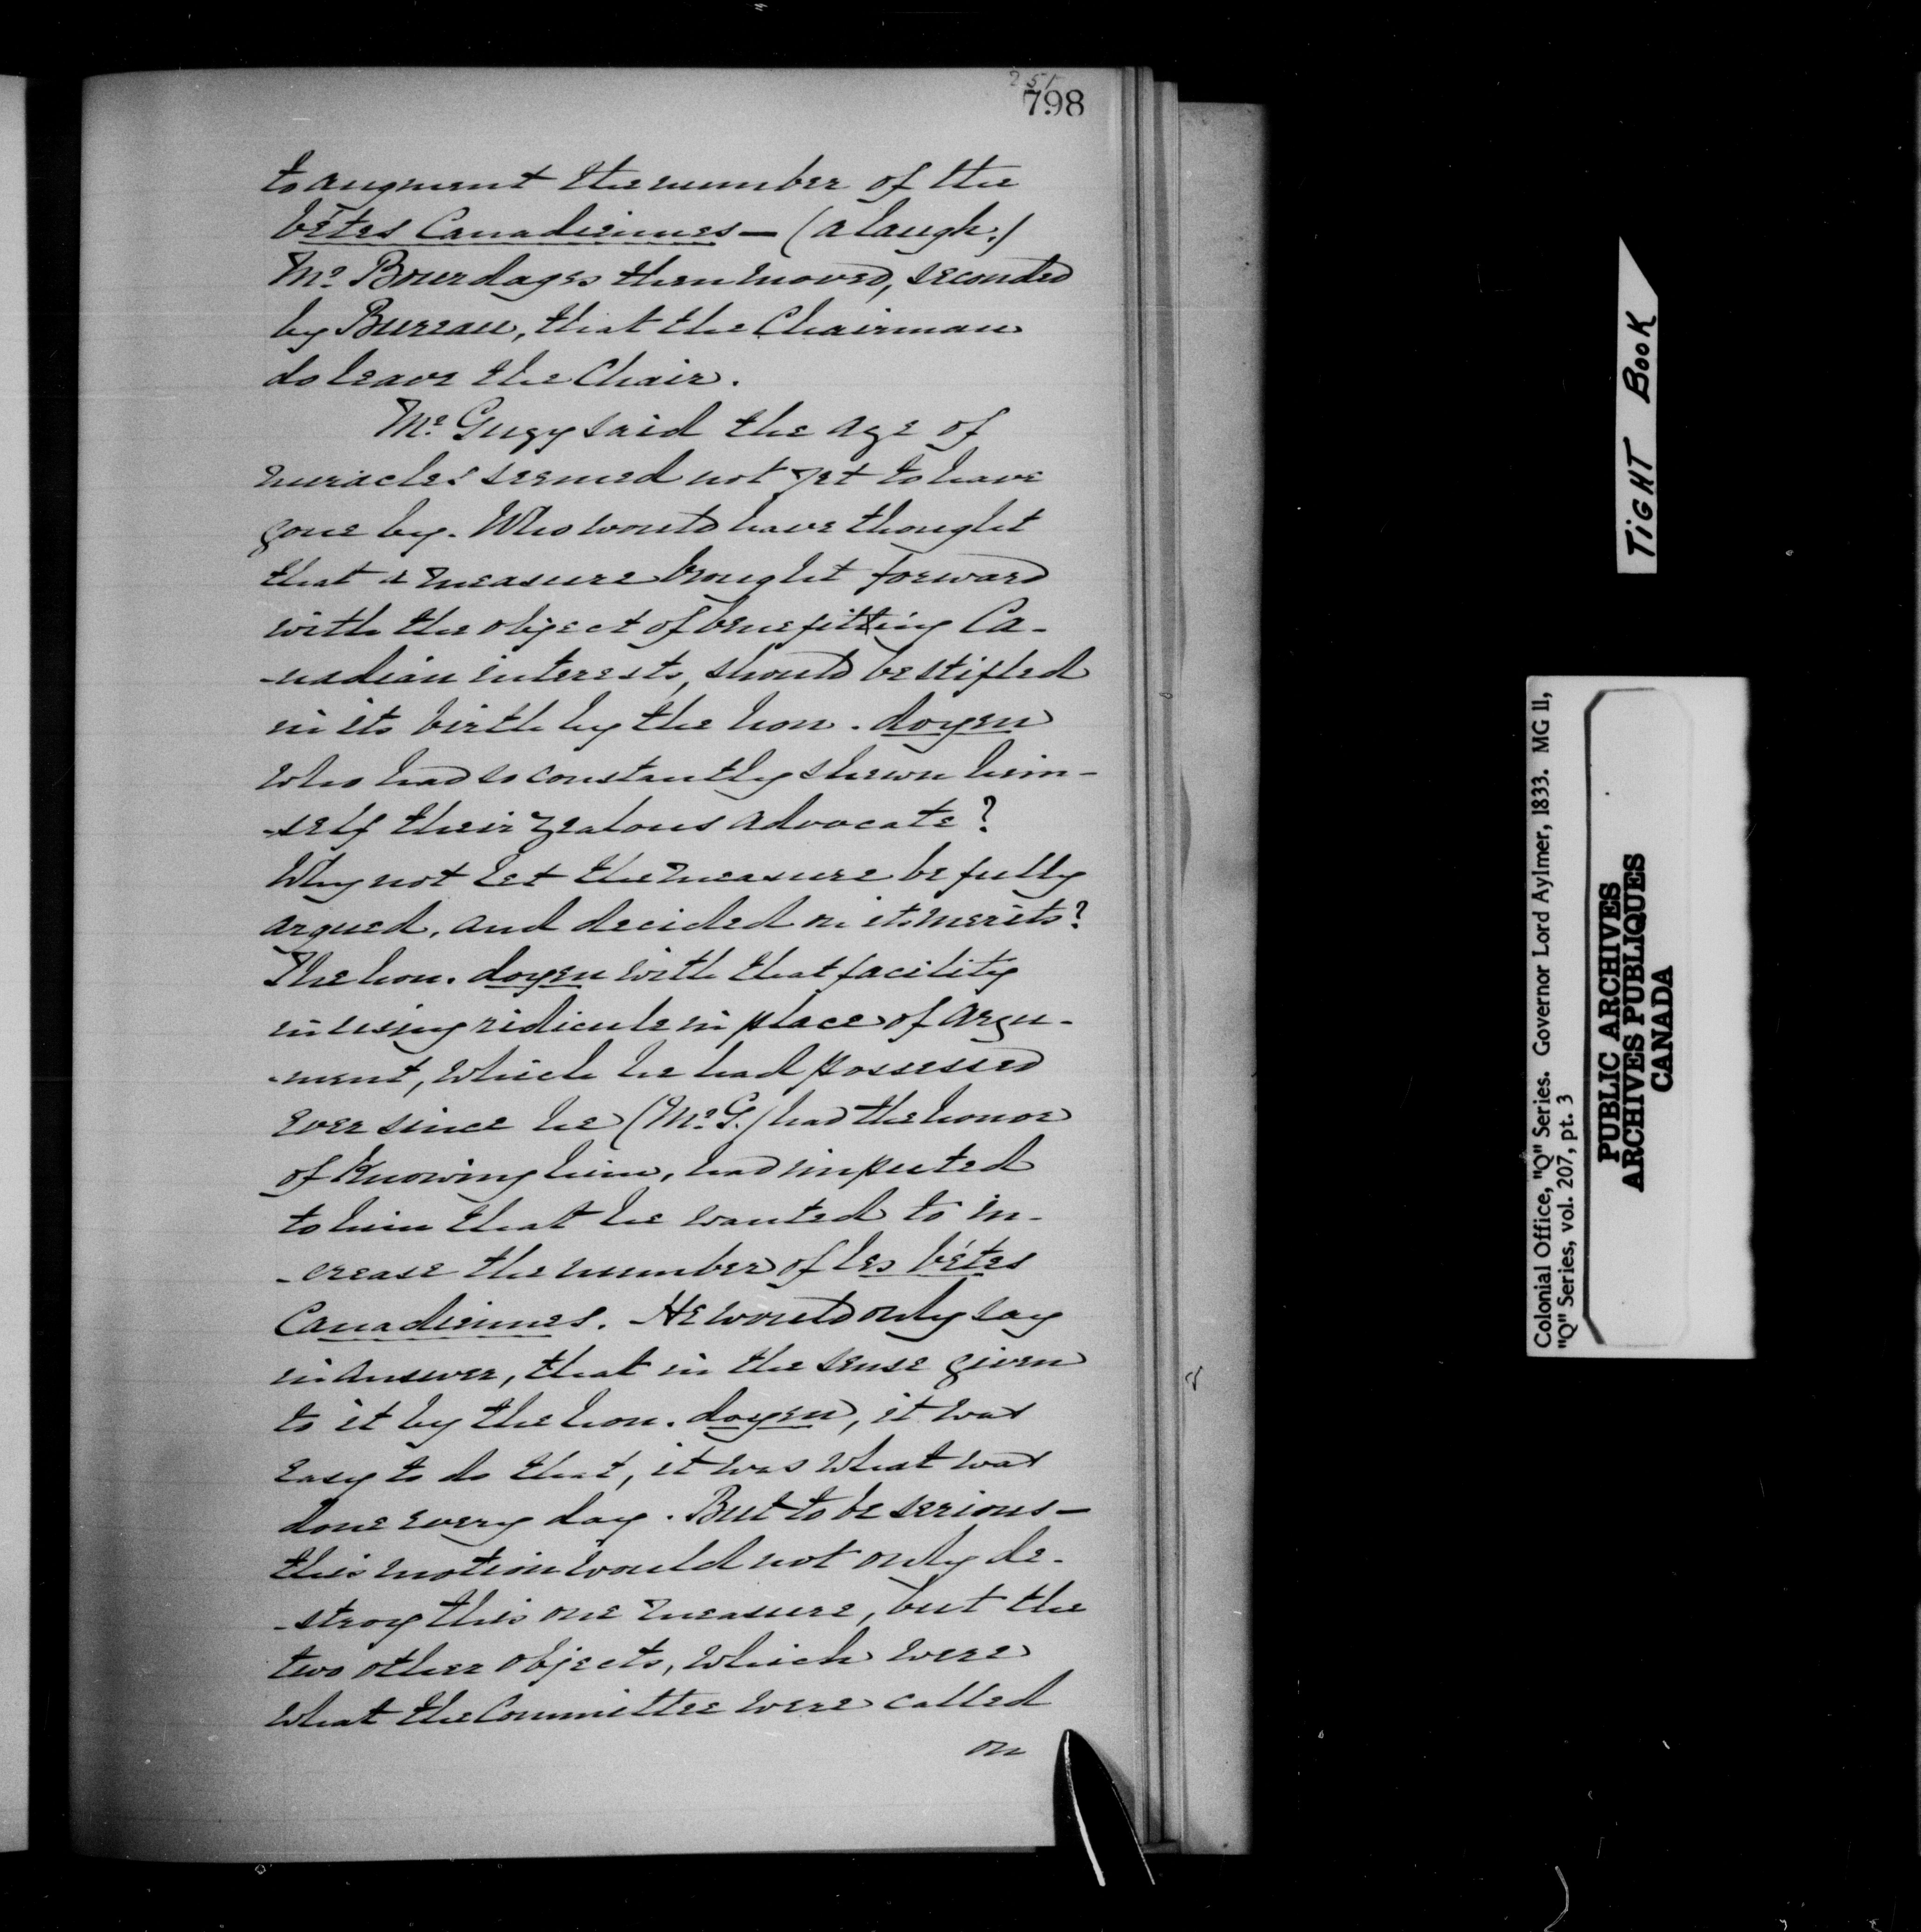 251
798
to augment the number of the
bêtes Canadiennes — (a laugh.)
Mr. Bourdages then moved, seconded
by Bureau, that the Chairman
do leave the Chair.
Mr. Gugy said the age of
miracles seemed not yet to have
gone by. Who would have thought
that a measure brought forward
with the object of benefitting Ca-
-nadian interests, should be stifled
in its birth by the hon. doyen
who had so constantly shewn him-
-self their zealous advocate?
Why not let the measure be fully
argued, and decided on its merits?
The hon. doyen with that facility
in using ridicule in place of argu-
-ment, which he had possessed
ever since he (Mr. G.) had the honor
of Knowing him, had imputed
to him that he wanted to in-
-crease the number of les bétes
Canadiennes. He would only say
in answer, that in the sense given
to it by the hon. doyen, it was
easy to do that, it was what was
done every day. But to be serious —
this motion would not only de-
-stroy this one measure, but the
two other objects, which were
what the Committee were called
on
TIGHT BOOK
Colonial Office, "Q" Series. Governor Lord Aylmer, 1833. MG 11,
"Q" Series, vol. 207, pt. 3
PUBLIC ARCHIVES
ARCHIVES PUBLIQUES
CANADA